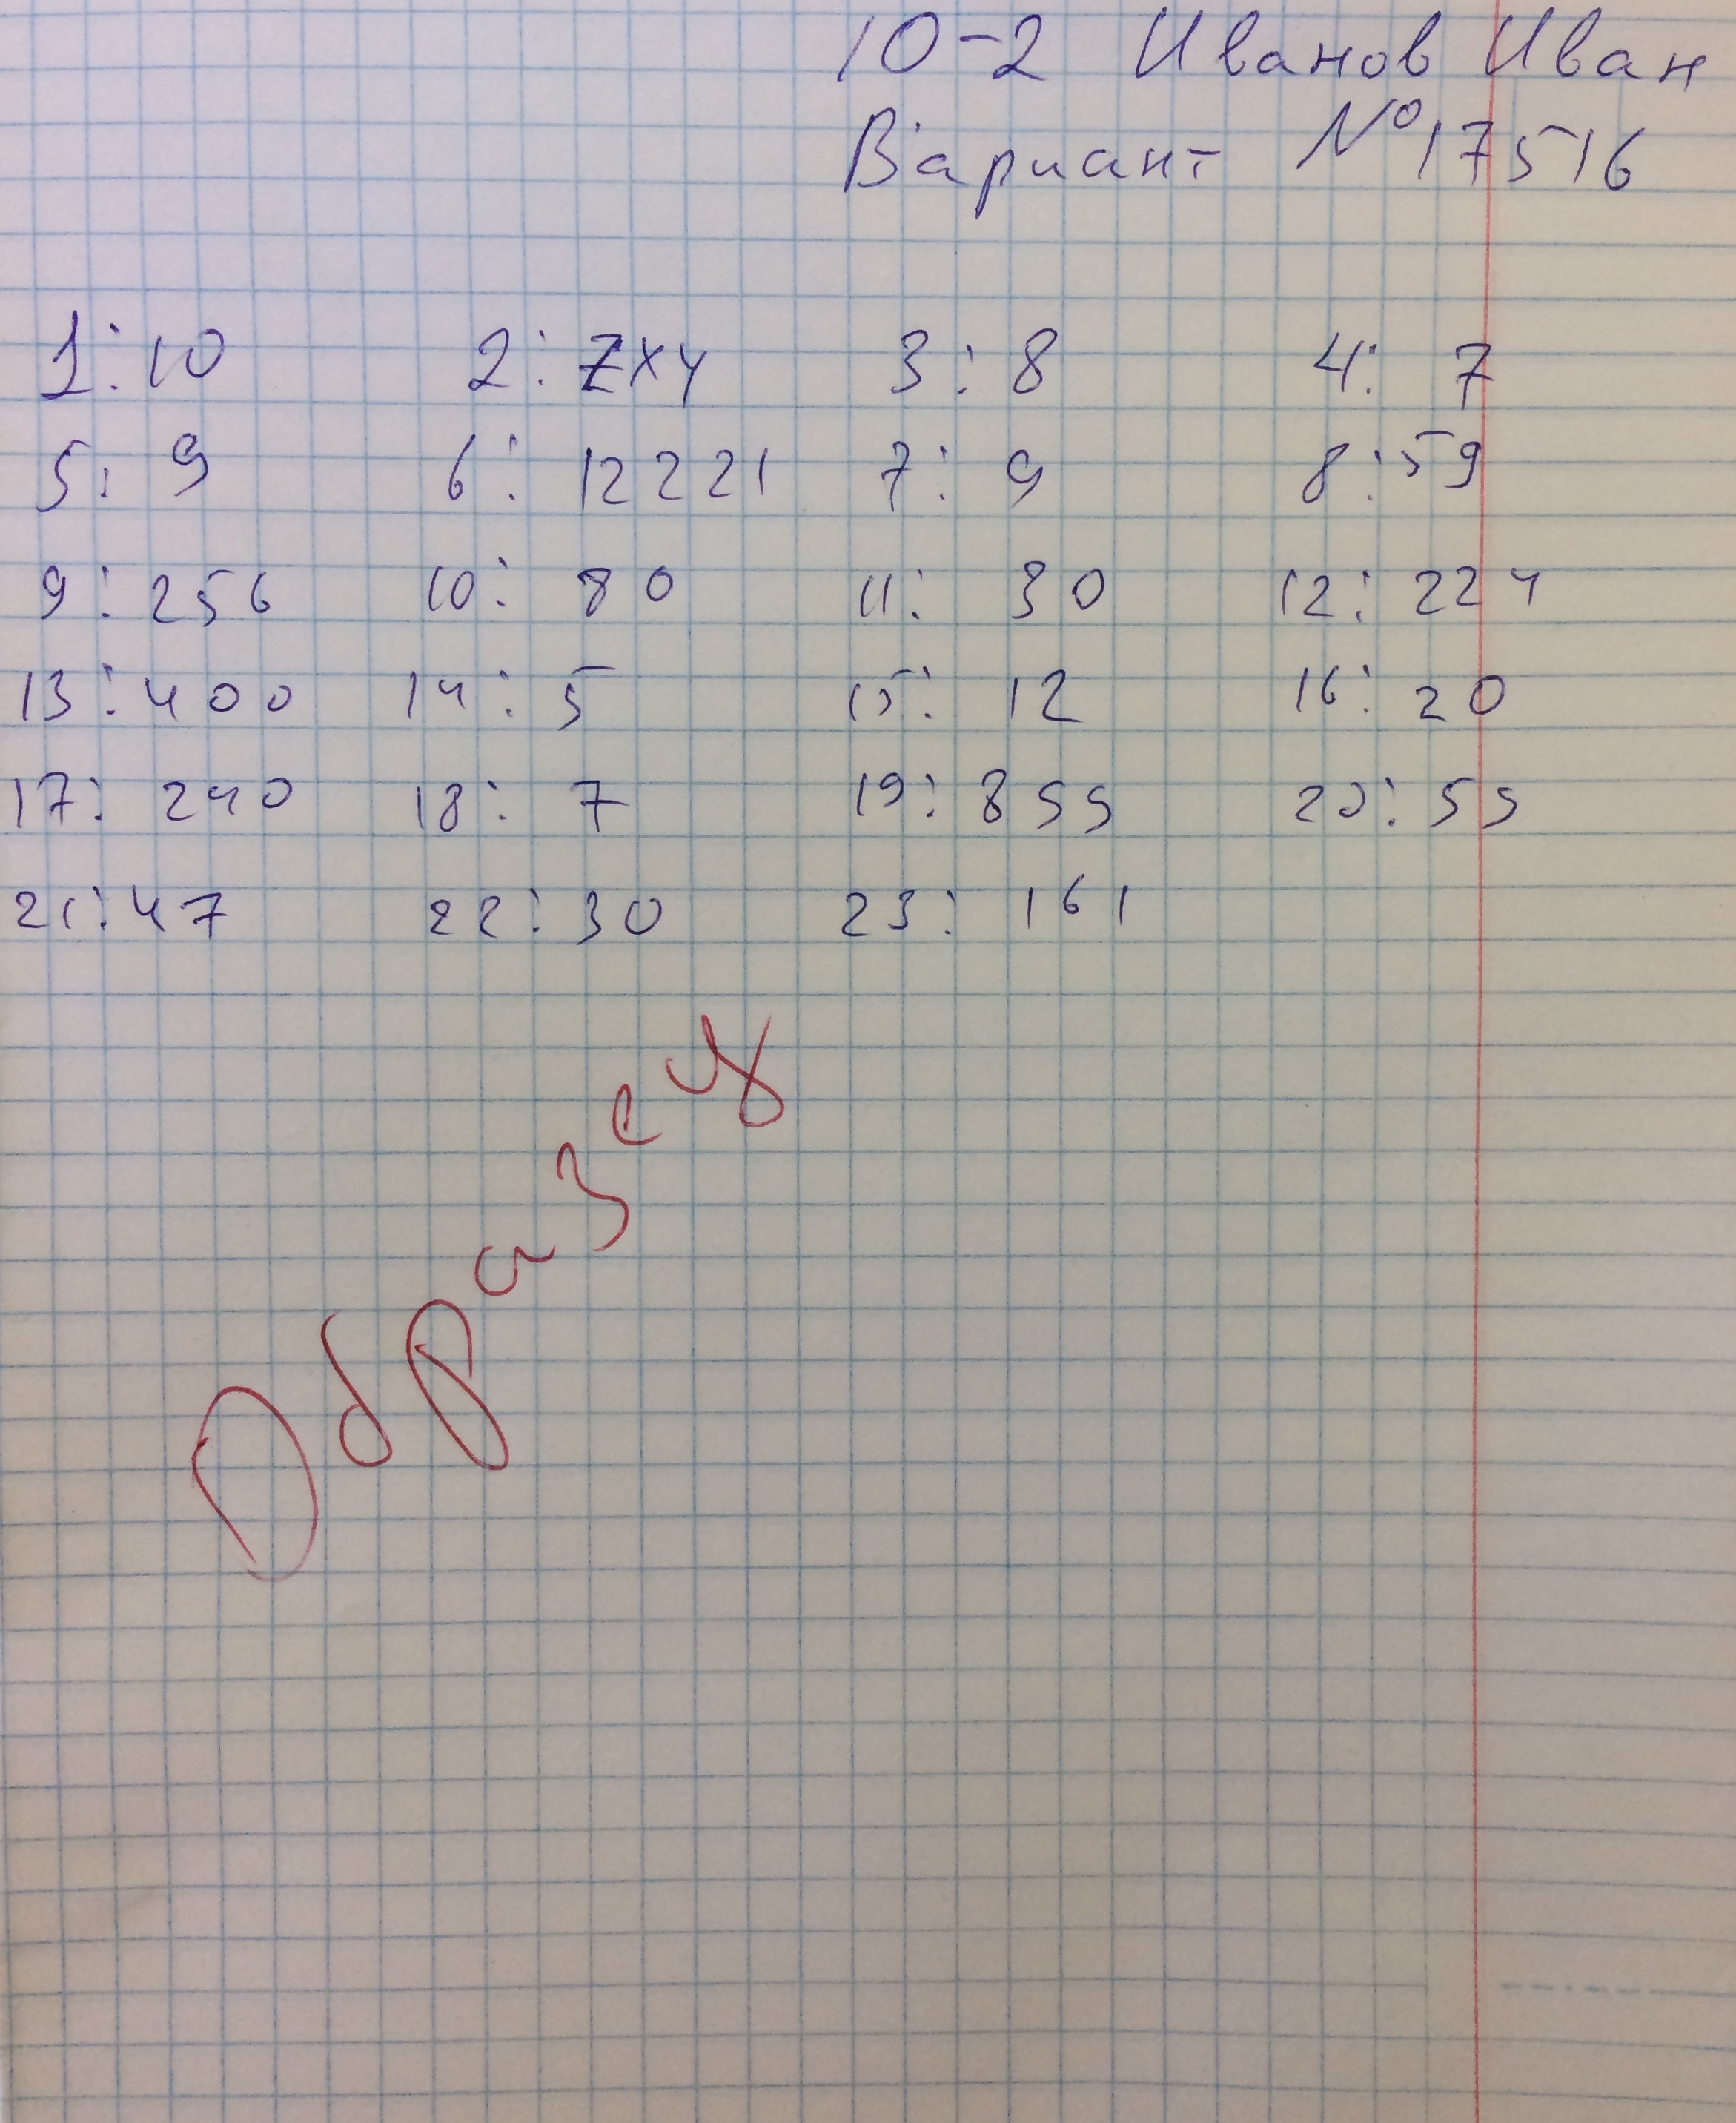 10-2 Иванов Иван
Вариант №17516
1: 10 2: ZXY 3: 8 4: 7
5: 9 6: 12221 7: 9 8: 59
9: 256 10: 80 11: 30 12: 224
13: 400 14: 5 15: 12 16: 20
17: 240 18: 7 19: 855 20: 55
21: 47 22: 30 23: 161
Образец